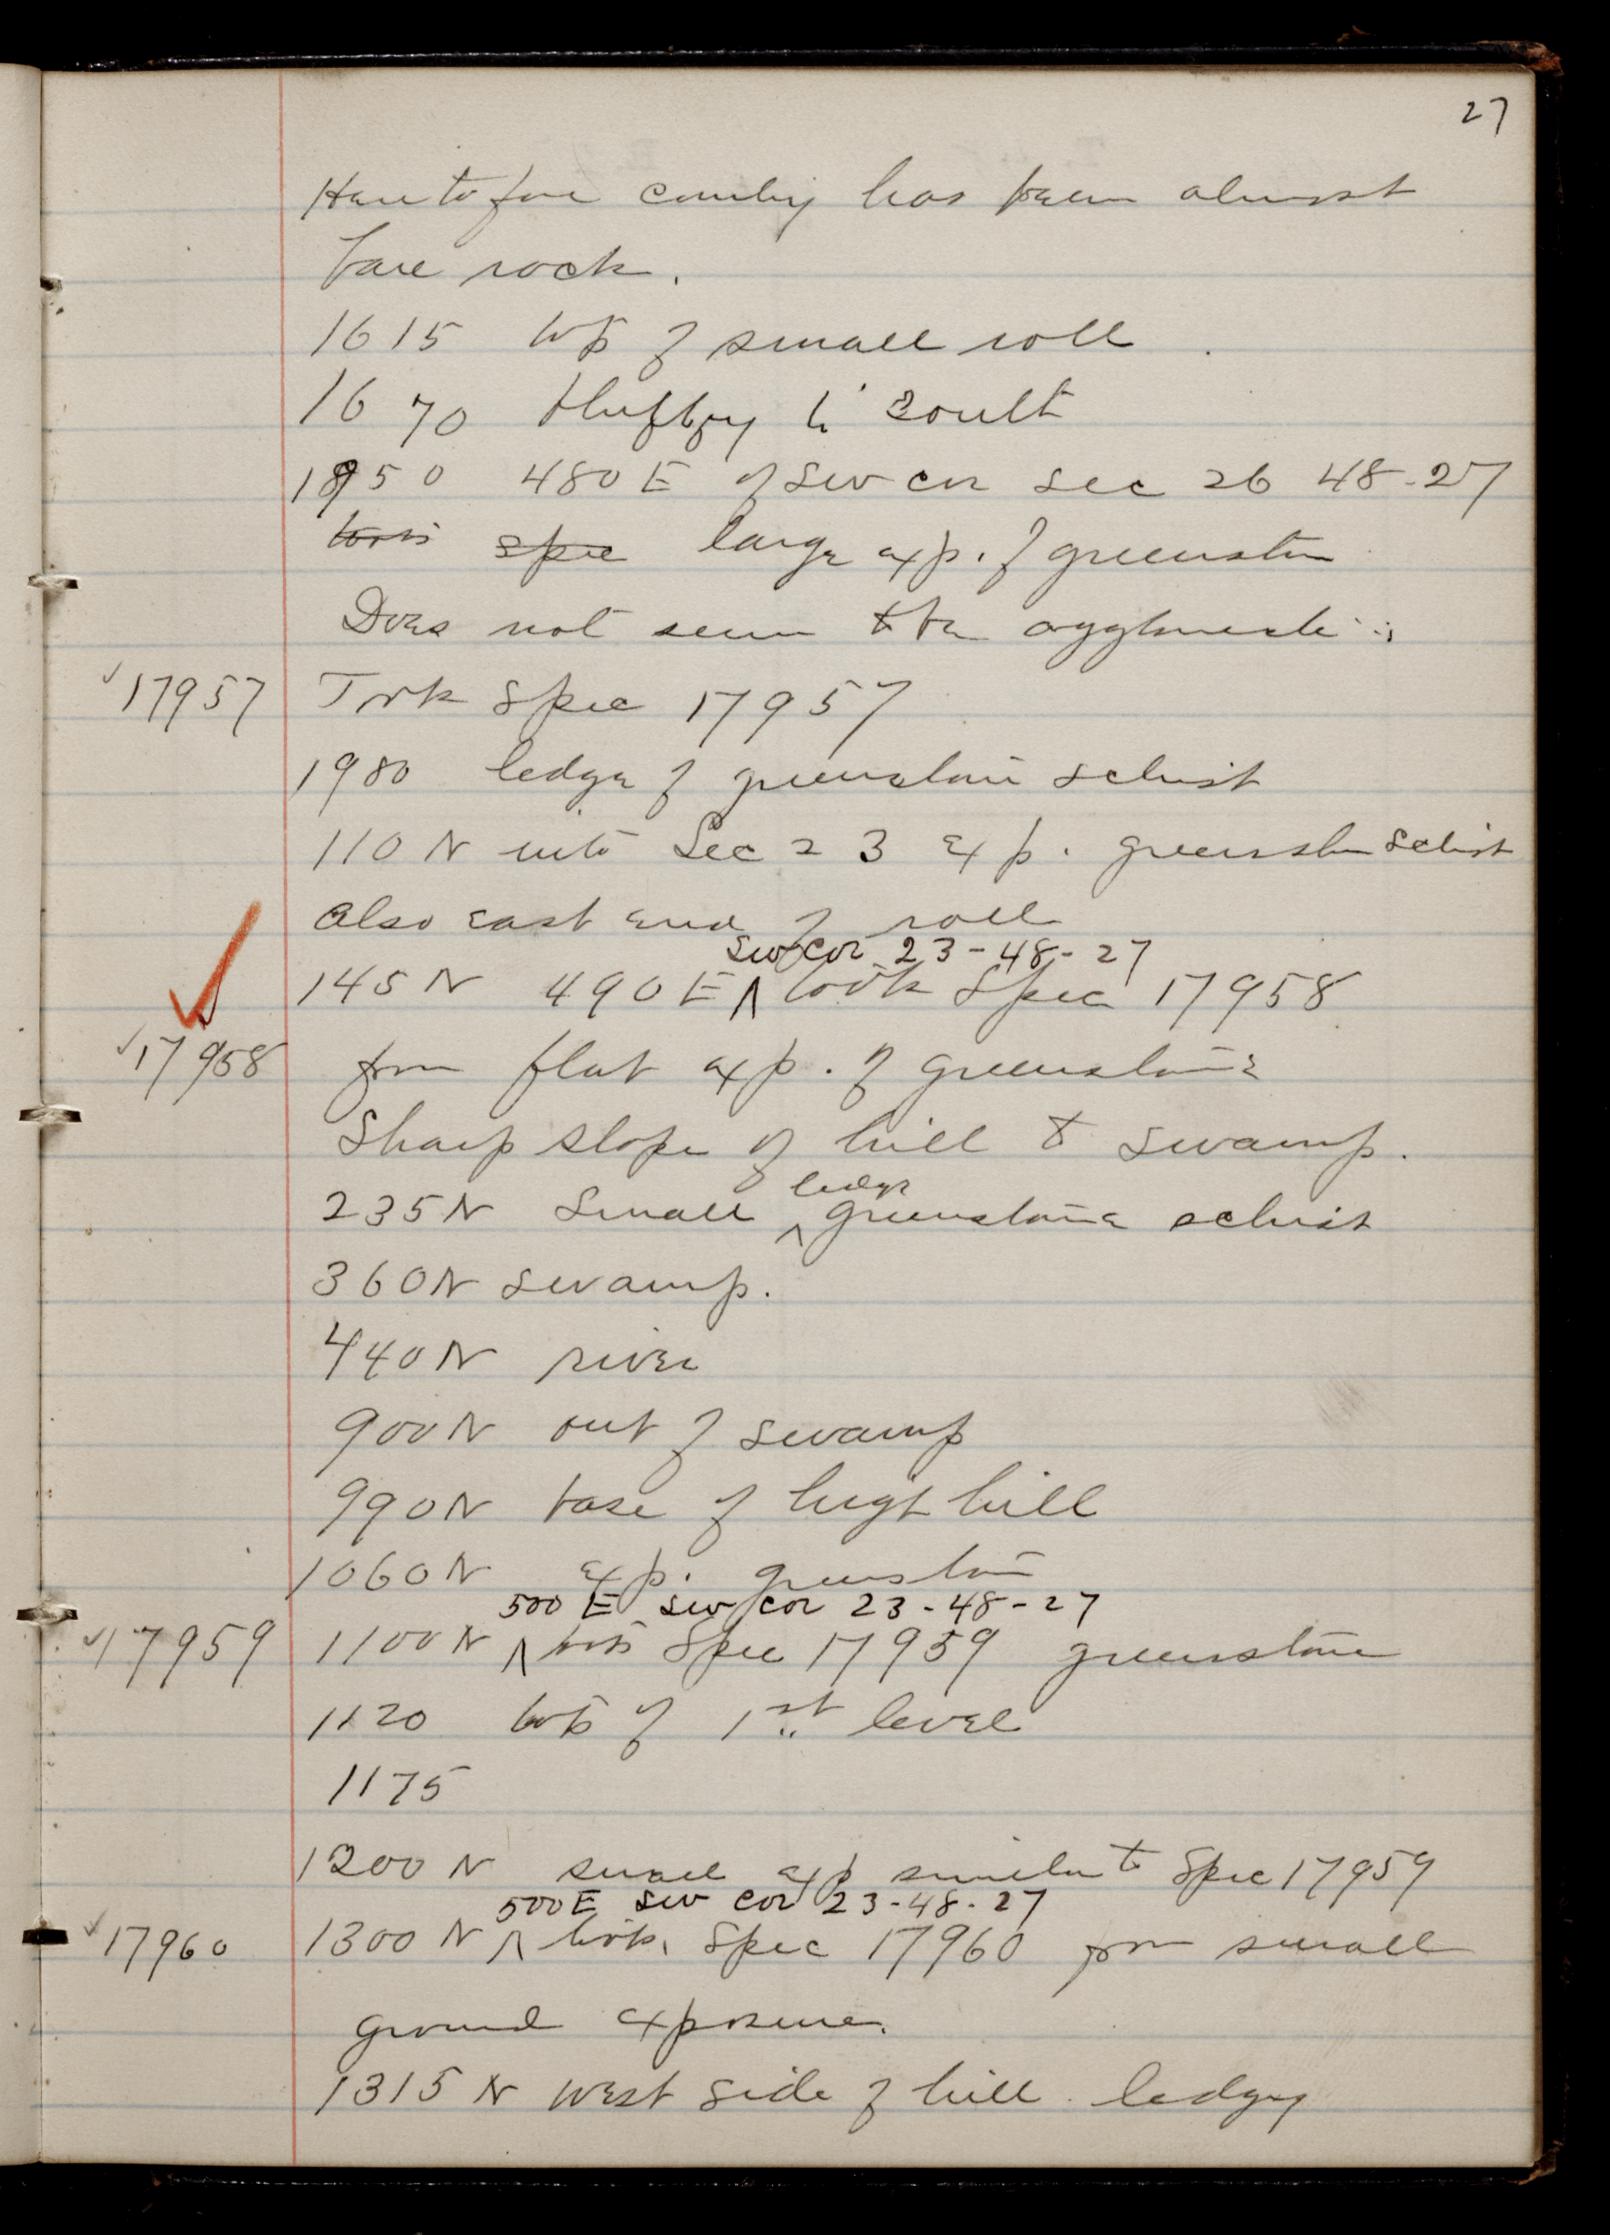 27
Heretofore country has been almost
bare rock.
1615 top of small roll.
1670 bluffy to south
1950 480 E of SW cor Sec 26 48-27
took spec large exp. of greenstone
Does not seem to be agglomerate
17957 Took Spec 17957
1980 ledge of greenstone schist
110 N into Sec 23 exp. greenstone schist
Also east end of roll
SW cor 23-48-27
145 N 490 E ∧ took Spec 17958
17958 from flat exp. of greenstone
Sharp slope of hill to swamp.
ledge
235 N Small ∧ greenstone schist
360 N swamp.
440 N river
900 N out of swamp
990 N base of high hill
1060 N exp. greenstone
500 E SW cor 23-48-27
17959 1100 N ∧ took Spec 17959 greenstone
1120 top of 1st level
1175
1200 N small exp similar to Spec 17959
500 E SW cor 23-48-27
17960 1300 N ∧ took Spec 17960 from small
ground exposure.
1315 N West side of hill ledgy